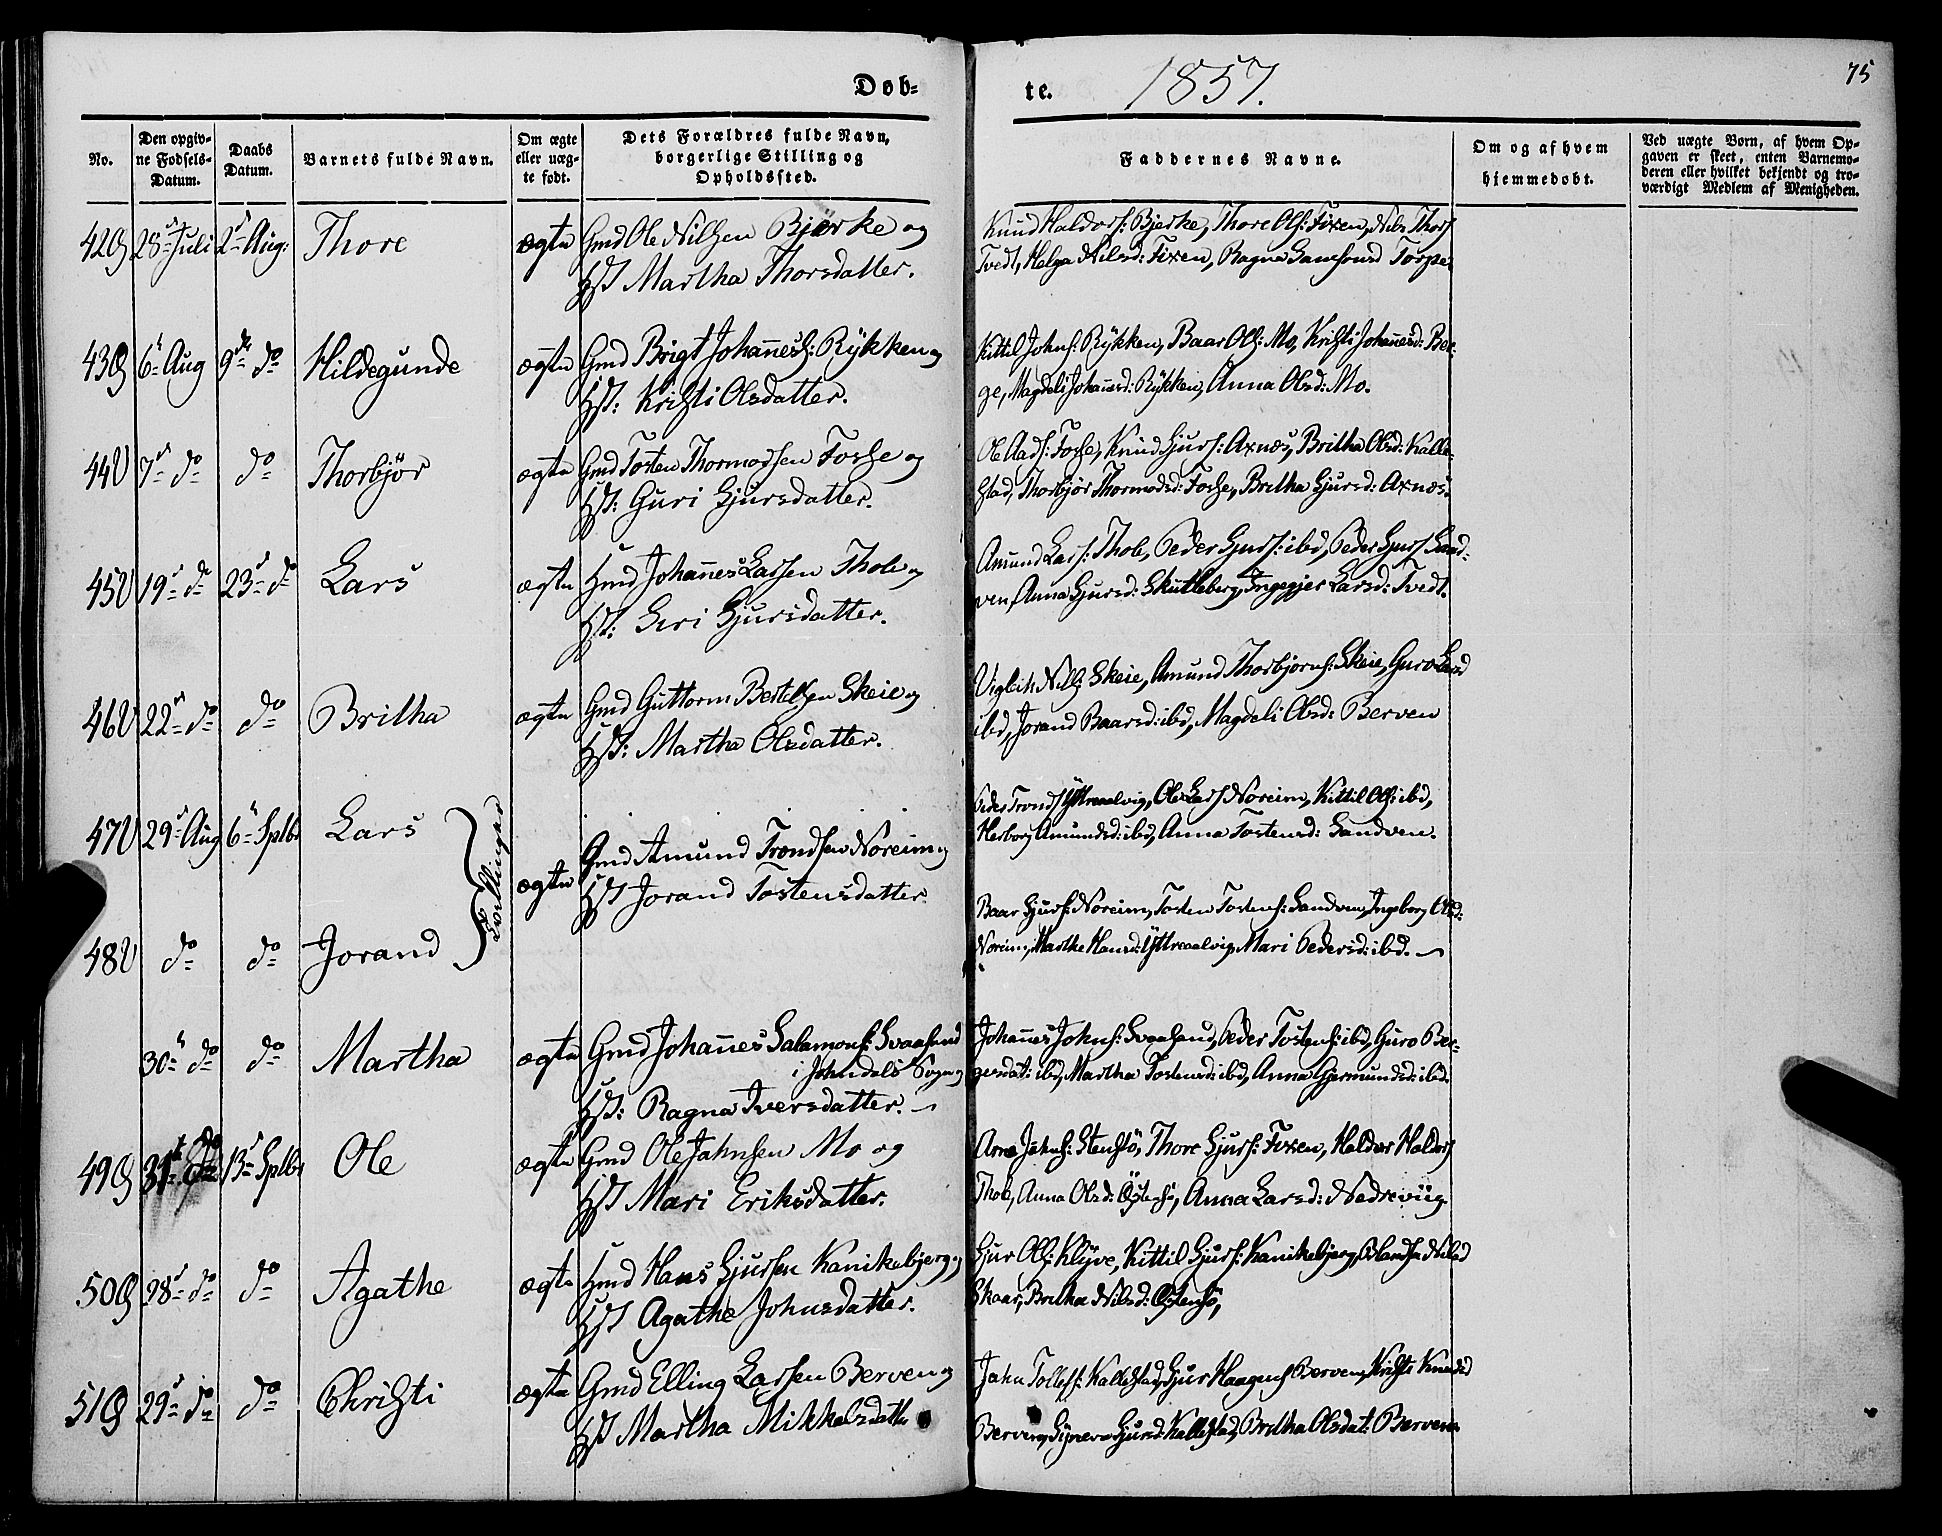 Døb-
te.
1857.
75
No.
Den opgiv-
ne Fødsels-
Datum.
Daabs
Datum.
Barnets fulde Navn.
Om ægte
eller uæg-
te født.
Dets Forældres fulde Navn,
borgerlige Stilling og
Opholdssted.
Faddernes Navne.
Om og af hvem
hjemmedøbt.
Ved uægte Børn, af hvem Op-
gaven er skeet, enten Barnemo-
deren eller hvilket bekjendt og tro-
værdigt Medlem af Menigheden.
42 28 Juli 2 Aug: Thore ægte Gmd Ole Nilsen Bjerke og
Hst Martha Thorsdatter.
Knud Haldors: Bjerke, Thore Ols: Fixen, Nils Thors
Tvedt, Helga Nilsd: Fixen, Ragna Samsonsd Torpe.
43 6 Aug 9de do Hildegunde ægte Gmd Brigt Johannes: Rykken og
Hst: Kristi Olsdatter.
Kittil Johns: Rykken, Baar Ols: Mo, Kristi Johannesd: Ber-
ge, Magdeli Johannesd: Rykken, Anna Olsd: Mo.
44 7 do do Thorbjør ægte Gmd Tosten Thormodsen Fosse og
Hst: Guri Sjursdatter.
Ole Aads: Fosse, Knud Sjurs: Axnæs, Britha Olsd: Kalle-
stad, Thorbjør Thormodsd: Fosse, Britha Sjursd: Axnæs.
45 19 do 23 do Lars ægte Hmd Johannes Larsen Thole og
Hst: Siri Sjursdatter.
Amund Lars: Thole, Peder Sjurs: ibd, Peder Sjurs Sand-
ven, Anna Sjursd: Skutleberg, Ingegjer Larsd: Tvedt.
46 22 do do Britha ægte Gmd Guttorm Bertelsen Skeie og
Hst: Martha Olsdatter.
Vigleik Nils: Skeie, Amund Thorbjørns: Skeie, Guro Larsd
ibd, Jorand Baarsd: ibd, Magdeli Olsd: Berven
47 29 Aug 6 Sptbr Lars
Tvillinger
ægte
Gmd Amund Trondsen Noreim og
Hst Jorand Tostensdatter.
Peder Tronds Yttreaalvig, Ole Lars Noreim, Kittil Ols: ibd,
Herborg Amundsd: ibd, Anna Tostensd: Sandven.
48 do do Jorand
Baar Sjurs: Noreim, Tosten Tostens: Sandven, Ingeborg Olsd:
Noreim, Marthe Hansd: Yttreaalvig, Mari Pedersd: ibd.
30 do do Martha ægte Gmd Johannes Salamons: Svaasand
i Johndals Sogn og
Hst: Ragna Iversdatter.
Johannes Johns: Svaasand, Peder Tostens: ibd, Guro Ber-
gesdat: ibd, Martha Tostensd: ibd, Anna Gjermundsd: ibd.
49 31 do 13 Sptbr Ole ægte Gmd Ole Jahnsen Mo og
Hst Mari Eriksdatter.
Arne Jahns: Stensø, Thore Sjurs: Fixen, Haldor Haldors
Thole, Anna Olsd: Øystensø, Anna Larsd: Nedreviig.
50 28 do do Agathe ægte Hmd Hans Sjursen Kanikebjerg og
Hst Agathe Johnsdatter.
Sjur Ols: Klyve, Kittil Sjurs: Kanikebjerg, Nilsd
Skaar, Britha Nilsd: Østensø,
51 29 do do Christi ægte Gmd Elling Larsen Berven og
Hst Martha Mikkelsdatter
Jahn Tollefs: Kallestad, Sjur Haagens Berven, Kristi Knudsd
Berven, Sjursd: Kallestad, Britha Olsdat: Berven.